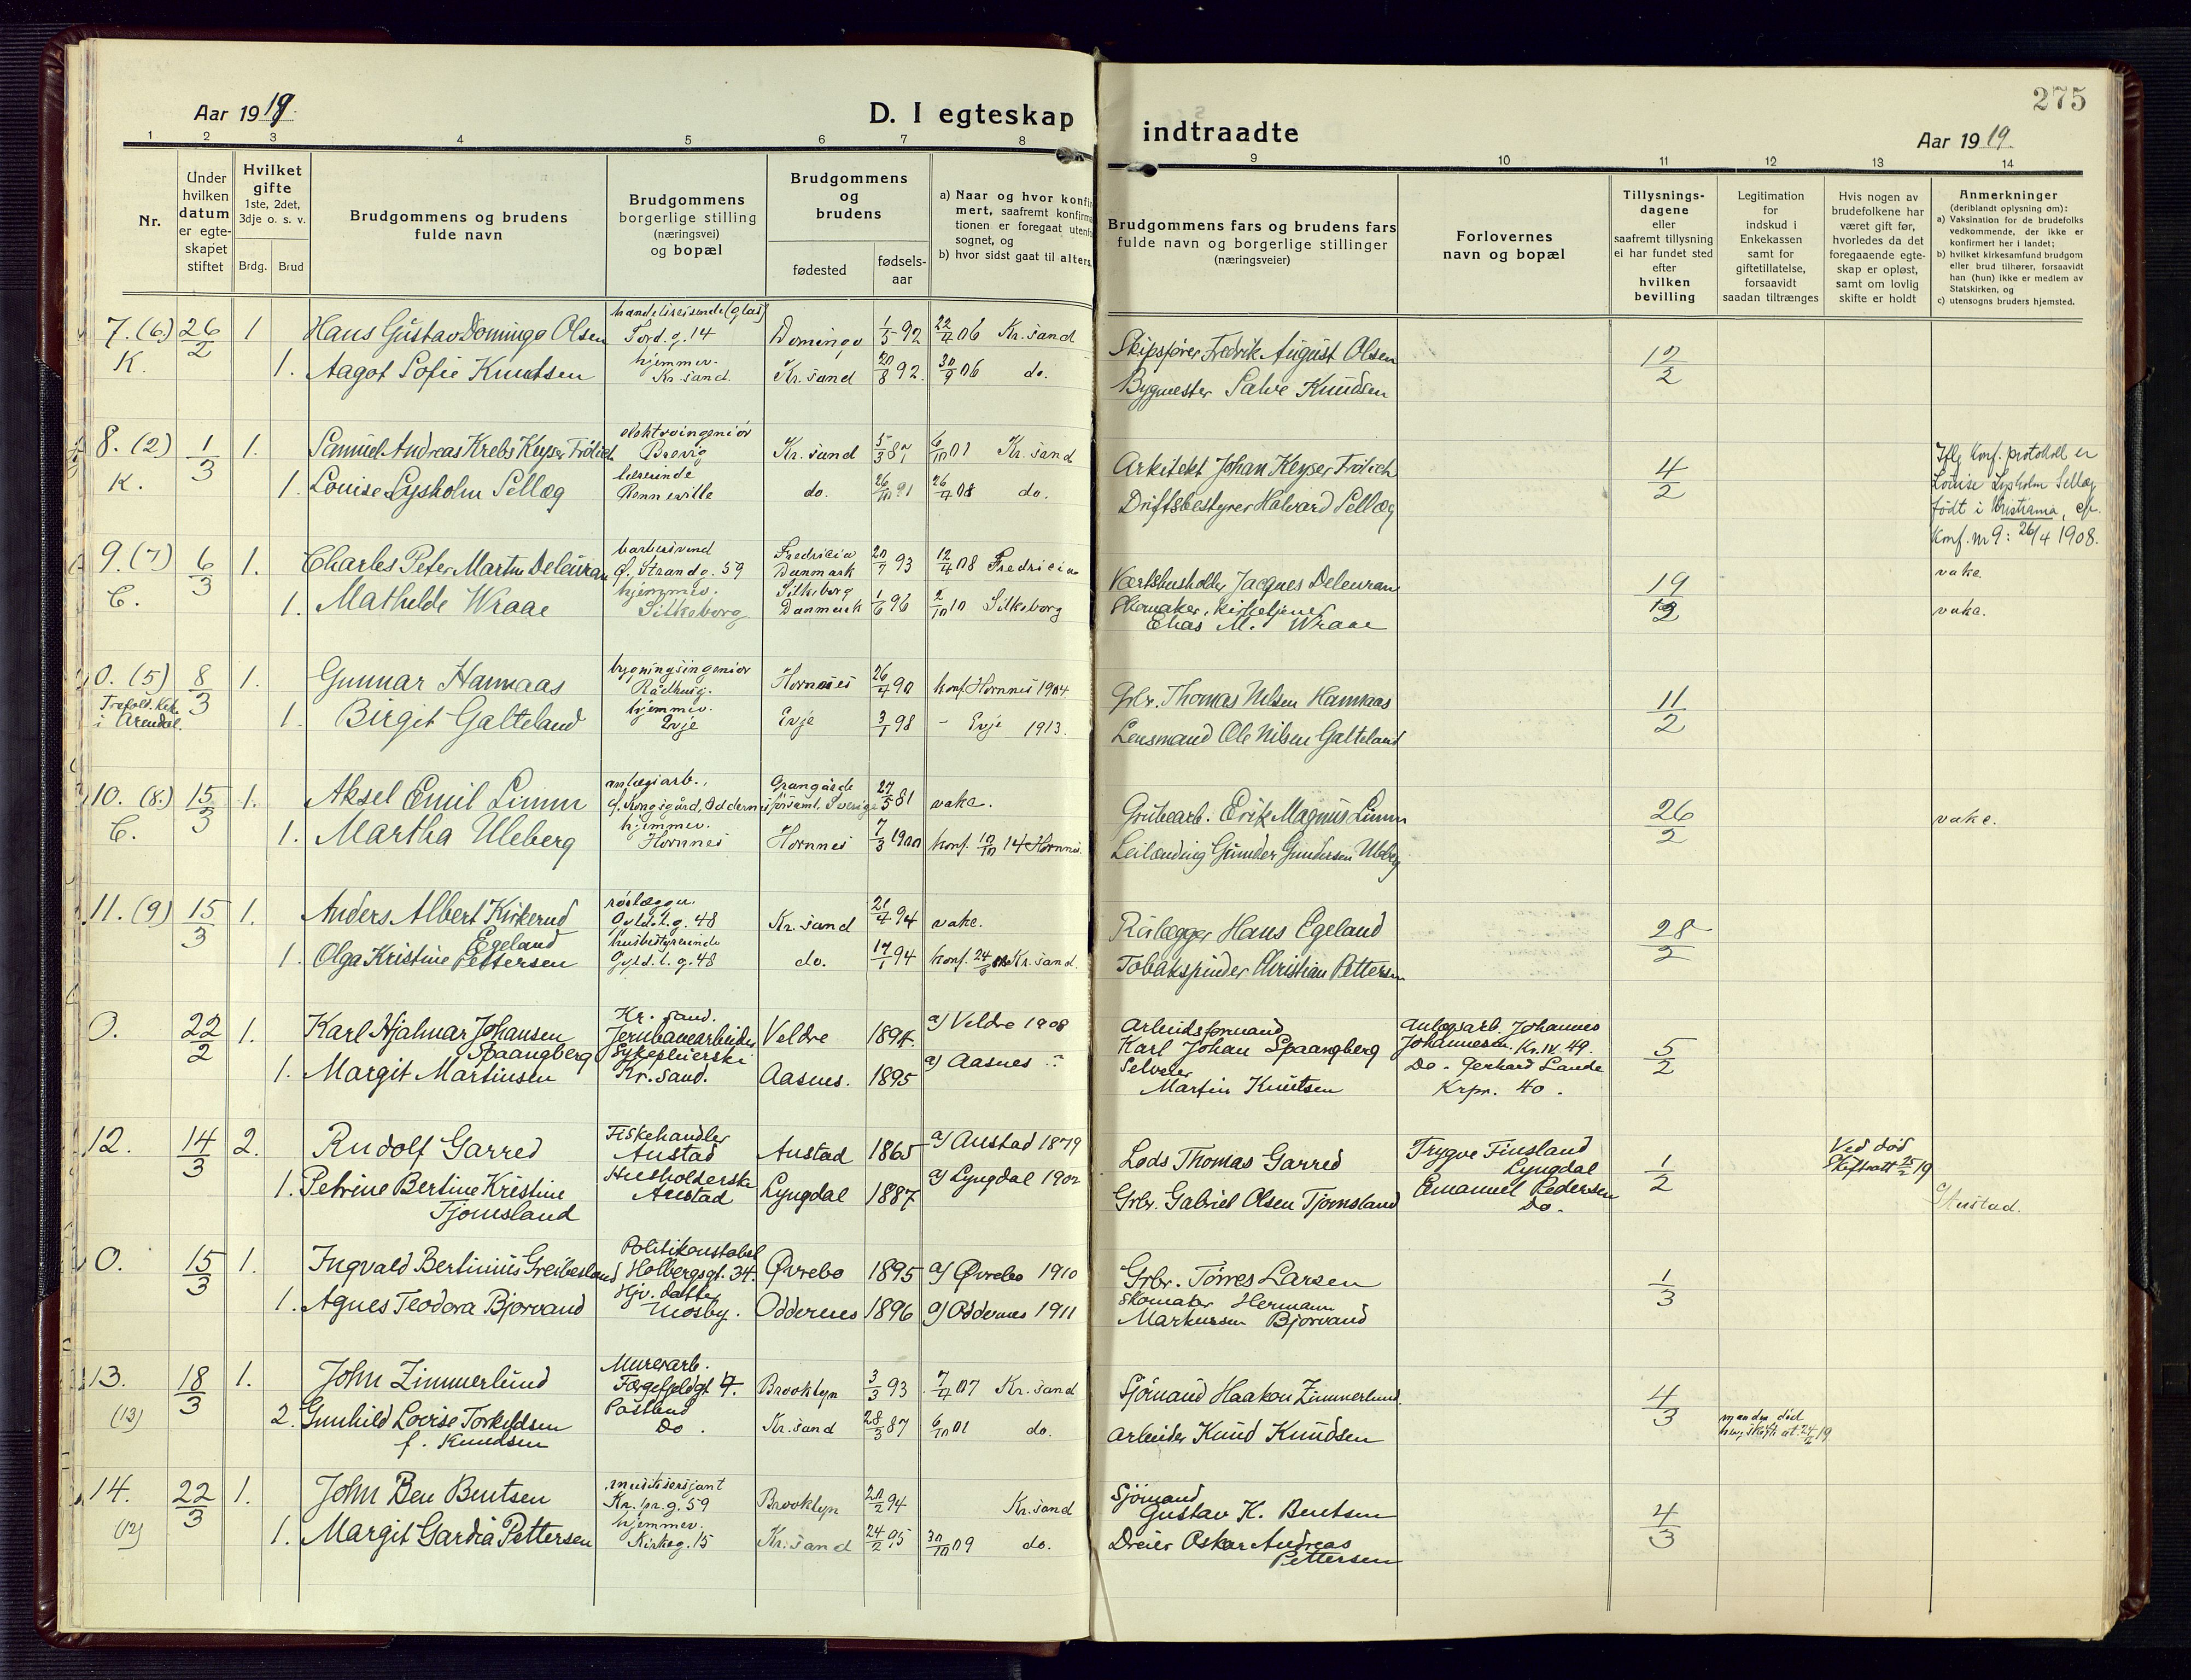 275
Aar 1919.
D. I egteskap
indtraadte
Aar 1919.
1 2 3 4 5 6 7 8 9 10 11 12 13 14
Nr.
Under hvilken datum er egte-skapet stiftet
Hvilket gifte 1ste, 2det, 3dje o. s. v.
Brdg. Brud
Brudgommens og brudens fulde navn
Brudgommens borgerlige stilling (næringsvei) og bopæl
Brudgommens og brudens
fødested
fødsels-aar
a) Naar og hvor konfir
mert, saafremt konfirma
tionen er foregaat utenfo
sognet, og
b) hvor sidst gaat til alters.
Brudgommens fars og brudens fars fulde navn og borgerlige stillinger (næringsveier)
Forlovernes navn og bopæl
Tillysnings-dagene eller saafremt tillysning ei har fundet sted efter hvilken bevilling
Legitimation for indskud i Enkekassen samt for giftetillatelse, forsaavidt saadan tiltrænges
Hvis nogen av brudefolkene har været gift før, hvorledes da det foregaaende egte-skap er opløst, samt om lovlig skifte er holdt
Anmerkninger
(deriblandt oplysning om):
a) Vaksination for de brudefolks vedkommende, der ikke er konfirmert her i landet;
b) hvilket kirkesamfund brudgom eller brud tilhører, forsaavidt han (hun) ikke er medlem av Statskirken, og
c) utensogns bruders hjemsted.
7. (6.) 26/2 1 Hans Gustav Domingo Olsen handelsreisende (glas) Tord. g. 14 Domingo 1/5 92 22/4 06 Kr.sand Skipsfører Fredrik August Olsen 12/2
K. 1. Aagot Sofie Knudsen hjemmev. Kr.sand. Kr.sand 20/8 92. 30/9 06 do. Bygmester Salve Knudsen
8. (2) 1/3 1. Samuel Andreas Krebs Keyser Frölich elektroingeniør Brevig Kr.sand 5/3 87 6/10 01 Kr.sand Arkitekt Johan Keyser Frölich 4/2
K. 1. Louise Lysholm Sellæg Renneville do. 26/10 91 26/4 08 do. Driftsbestyrer Halvard Sellæg
Iflg konf. protokoll er
Louise Lysholm Sellæg
født i Kristiania, cfr.
Konf. nr 9: 26/4 1908.
9. (7) 6/3 1. Charles Peter Martin Deleuran barbersvend Ø. Strandg. 59 Fredricia Danmark 20/7 93 12/4 08 Fredricia Værtshusholder Jacques Deleuran 19/2 vake.
C. 1. Mathelde Wraae hjemmev. Silkeborg Silkeborg Danmark 1/6 96 2/10 10 Silkeborg Skomaker, kirketjener Elias M. Wraae vake.
0. (5) 8/3 1. Gunnar Hannaas bygningsingeniør Rådhusg. Hornnes 26/4 90 konf. Hornnes 1904 Grbr. Thomas Nilsen Hannaas 11/2
i Arendal. 1. Birgit Galteland hjemmev. Evje Evje 3/1 98 - Evje 1913. Lensmand Ole Nilsen Galteland
10. (8.) 15/3 1. Aksel Emil Linnn anlægsarb., Kongsgård, Oddernes Grangärde församl. Sverige 27/5 81 vake. Grubearb. Erik Magnus Linnn 26/2 vake.
C. 1. Martha Uleberg hjemmev. Hornnes Hornnes 7/3 1900 konf. 10/10 14 Hornnes. Leilænding Gunder Gundersen Uleberg
11. (9) 15/3 1. Anders Albert Kirkerud Egeland rørlægger. Gyld.l.g. 48 Kr.sand 21/4 94 vake. Rørlægger Hans Egeland 28/2
1. Olga Kristine Pettersen husbestyrerinde Gyld.l.g. 48 do. 17/1 94 konf. Kr.sand. Tobakspinder Christian Pettersen
0. 22/2 1. Karl Hjalmar Johansen Spaangberg Kr.sand. Jernbanearbeider Veldre 1894. a) Veldre 1908 Arbeidsformand Karl Johan Spaangberg Anlægsarb. Johannes Johannesen. Kr.IV. 49. 5/2
1. Margit Martinsen Sykepleierske Kr.sand. Aasnes. 1895 a) Aasnes - Selveier Martin Knutsen Do - Gerhard Lande Krpr. 40.
12. 14/3 2. Rudolf Garred Fiskehandler Austad Austad 1865 a) Austad 1879 Lods Thomas Garred Trygve Finsland Lyngdal 1/2 Ved død Skifteatt 25/2 19
1. Petrine Bertine Kristine Tjomsland Husholderske Austad Lyngdal 1887 a) Lyngdal 1902 Grbr. Gabriel Olsen Tjomsland Emanuel Pedersen Do. c/ Austad.
0. 15/3 1. Ingvald Bertinius Greibesland Politikonstabel Holbergsgt. 34. Øvrebo 1895 a) Øvrebo 1910 Grbr. Tørres Larsen 1/3
1. Agnes Teodora Bjorvand Hjv. datter Mosby. Oddernes 1896 a) Oddernes 1911 Skomaker Hermann Markussen Bjorvand
13. 18/3 1. John Zimmerlund Murerarb. Færgefjeldgt 7. Brooklyn 3/3 93 7/4 07 Kr.sand Sjømand Haakon Zimmerlund. 4/3
(13) 2. Gunhild Lovise Torkildsen f. Knudsen Do. Kr.sand 28/3 87 6/10 01 do. Arbeider Knud Knudsen manden død
14. 22/3 1. John Ben Bentsen musiksersjant Kr.pr.g. 59 Brooklyn 20/2 94 Kr.sand Sjømand Gustav K. Bentsen 4/3
(12) 1. Margit Gardia Pettersen hjemmev. Kirkeg. 15 Kr.sand 24/2 95 30/10 09 do. Dreier Oskar Andreas Pettersen